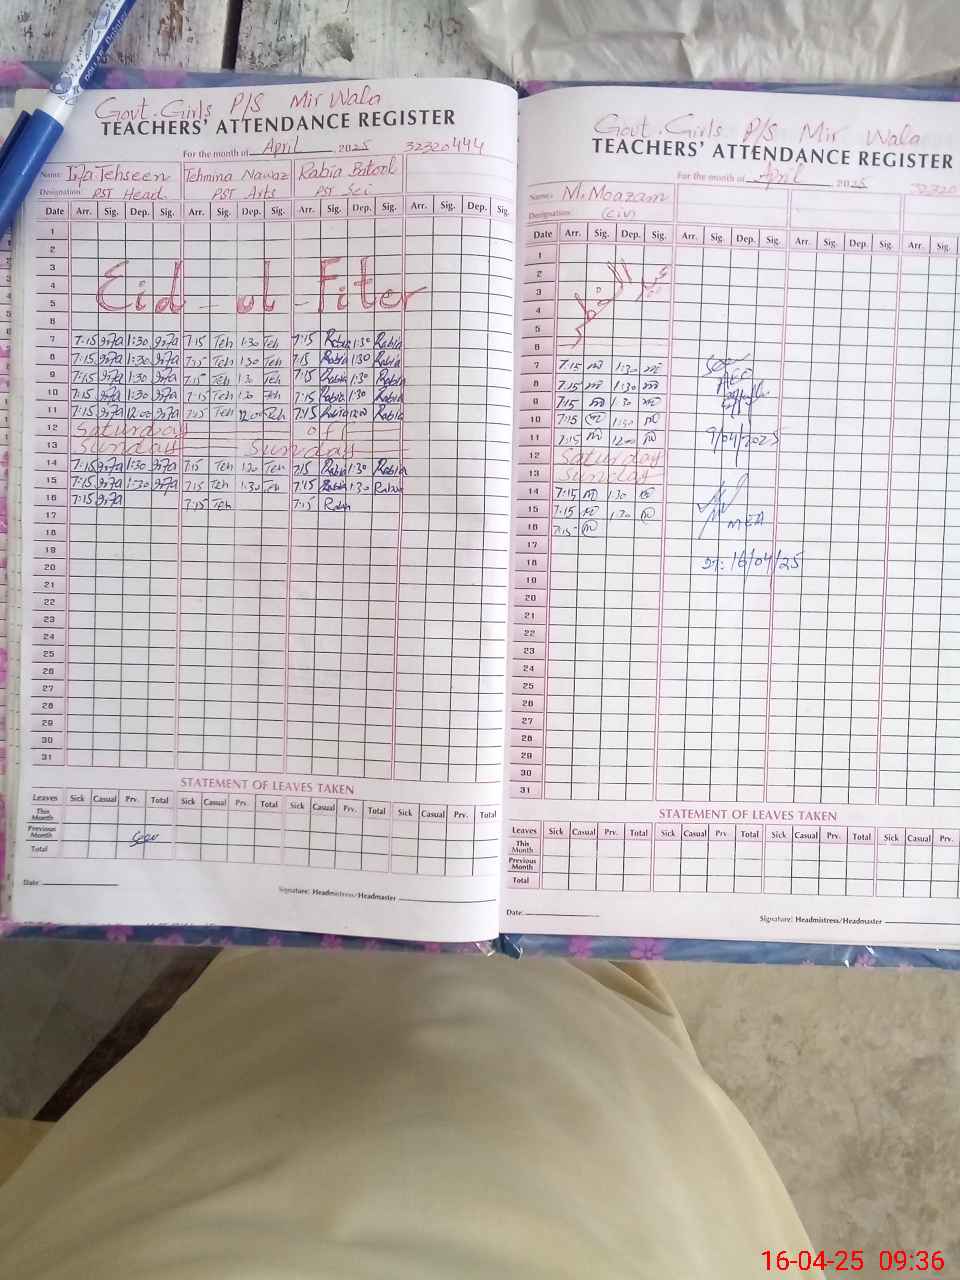 Govt. Girls P/S Mir Wala
TEACHERS' ATTENDANCE REGISTER
For the month of April 2025 32320444
Name: Tehseen Tehmina Nawaz Rabia Batool
Designation: PST Head PST Arts PST Sci
Date Arr. Sig. Dep. Sig. Arr. Sig. Dep. Sig. Arr. Sig. Dep. Sig. Arr. Sig. Dep. Sig.
1
2
3
4
5
6
Eid - ul - Fiter
7 7:15 1:30 7:15 Teh 1:30 Teh 7:15 Rabia 1:30 Rabia
8 7:15 1:30 7:15 Teh 1:30 Teh 7:15 Rabia 1:30 Rabia
9 7:15 1:30 7:15 Teh 1:30 Teh 7:15 Rabia 1:30 Rabia
10 7:15 1:30 7:15 Teh 1:30 Teh 7:15 Rabia 1:30 Rabia
11 7:15 12:00 7:15 Teh 12:00 Teh 7:15 Rabia 12:00 Rabia
12 Saturday off
13 Sunday Sunday
14 7:15 1:30 7:15 Teh 1:30 Teh 7:15 Rabia 1:30 Rabia
15 7:15 1:30 7:15 Teh 1:30 Teh 7:15 Rabia 1:30 Rabia
16 7:15 7:15 Teh 7:15 Rabia
17
18
19
20
21
22
23
24
25
26
27
28
29
30
31
STATEMENT OF LEAVES TAKEN
Leaves Sick Casual Prv. Total Sick Casual Prv. Total Sick Casual Prv. Total Sick Casual Prv. Total
This Month
Previous Month
Total
Date:
Signature: Headmistress/Headmaster
Govt. Girls P/S Mir Wala
TEACHERS' ATTENDANCE REGISTER
For the month of April 2025 32320
Name: M. Moazam
Designation: (civ)
Date Arr. Sig. Dep. Sig. Arr. Sig. Dep. Sig. Arr. Sig. Dep. Sig. Arr. Sig.
1
2
3
4
5
6
7 7:15 m 1:30 m
8 7:15 m 1:30 m
AEO
9 7:15 m 1:30 m
10 7:15 m 1:30 m
11 7:15 m 12:00 m 9/04/2025
12 Saturday
13 Sunday
14 7:15 m 1:30 m
15 7:15 m 1:30 m
16 7:15 m MEA
17
18 Dt: 16/04/25
19
20
21
22
23
24
25
26
27
28
29
30
31
STATEMENT OF LEAVES TAKEN
Leaves Sick Casual Prv. Total Sick Casual Prv. Total Sick Casual Prv. Total Sick Casual Prv.
This Month
Previous Month
Total
Date:
Signature: Headmistress/Headmaster
16-04-25 09:36